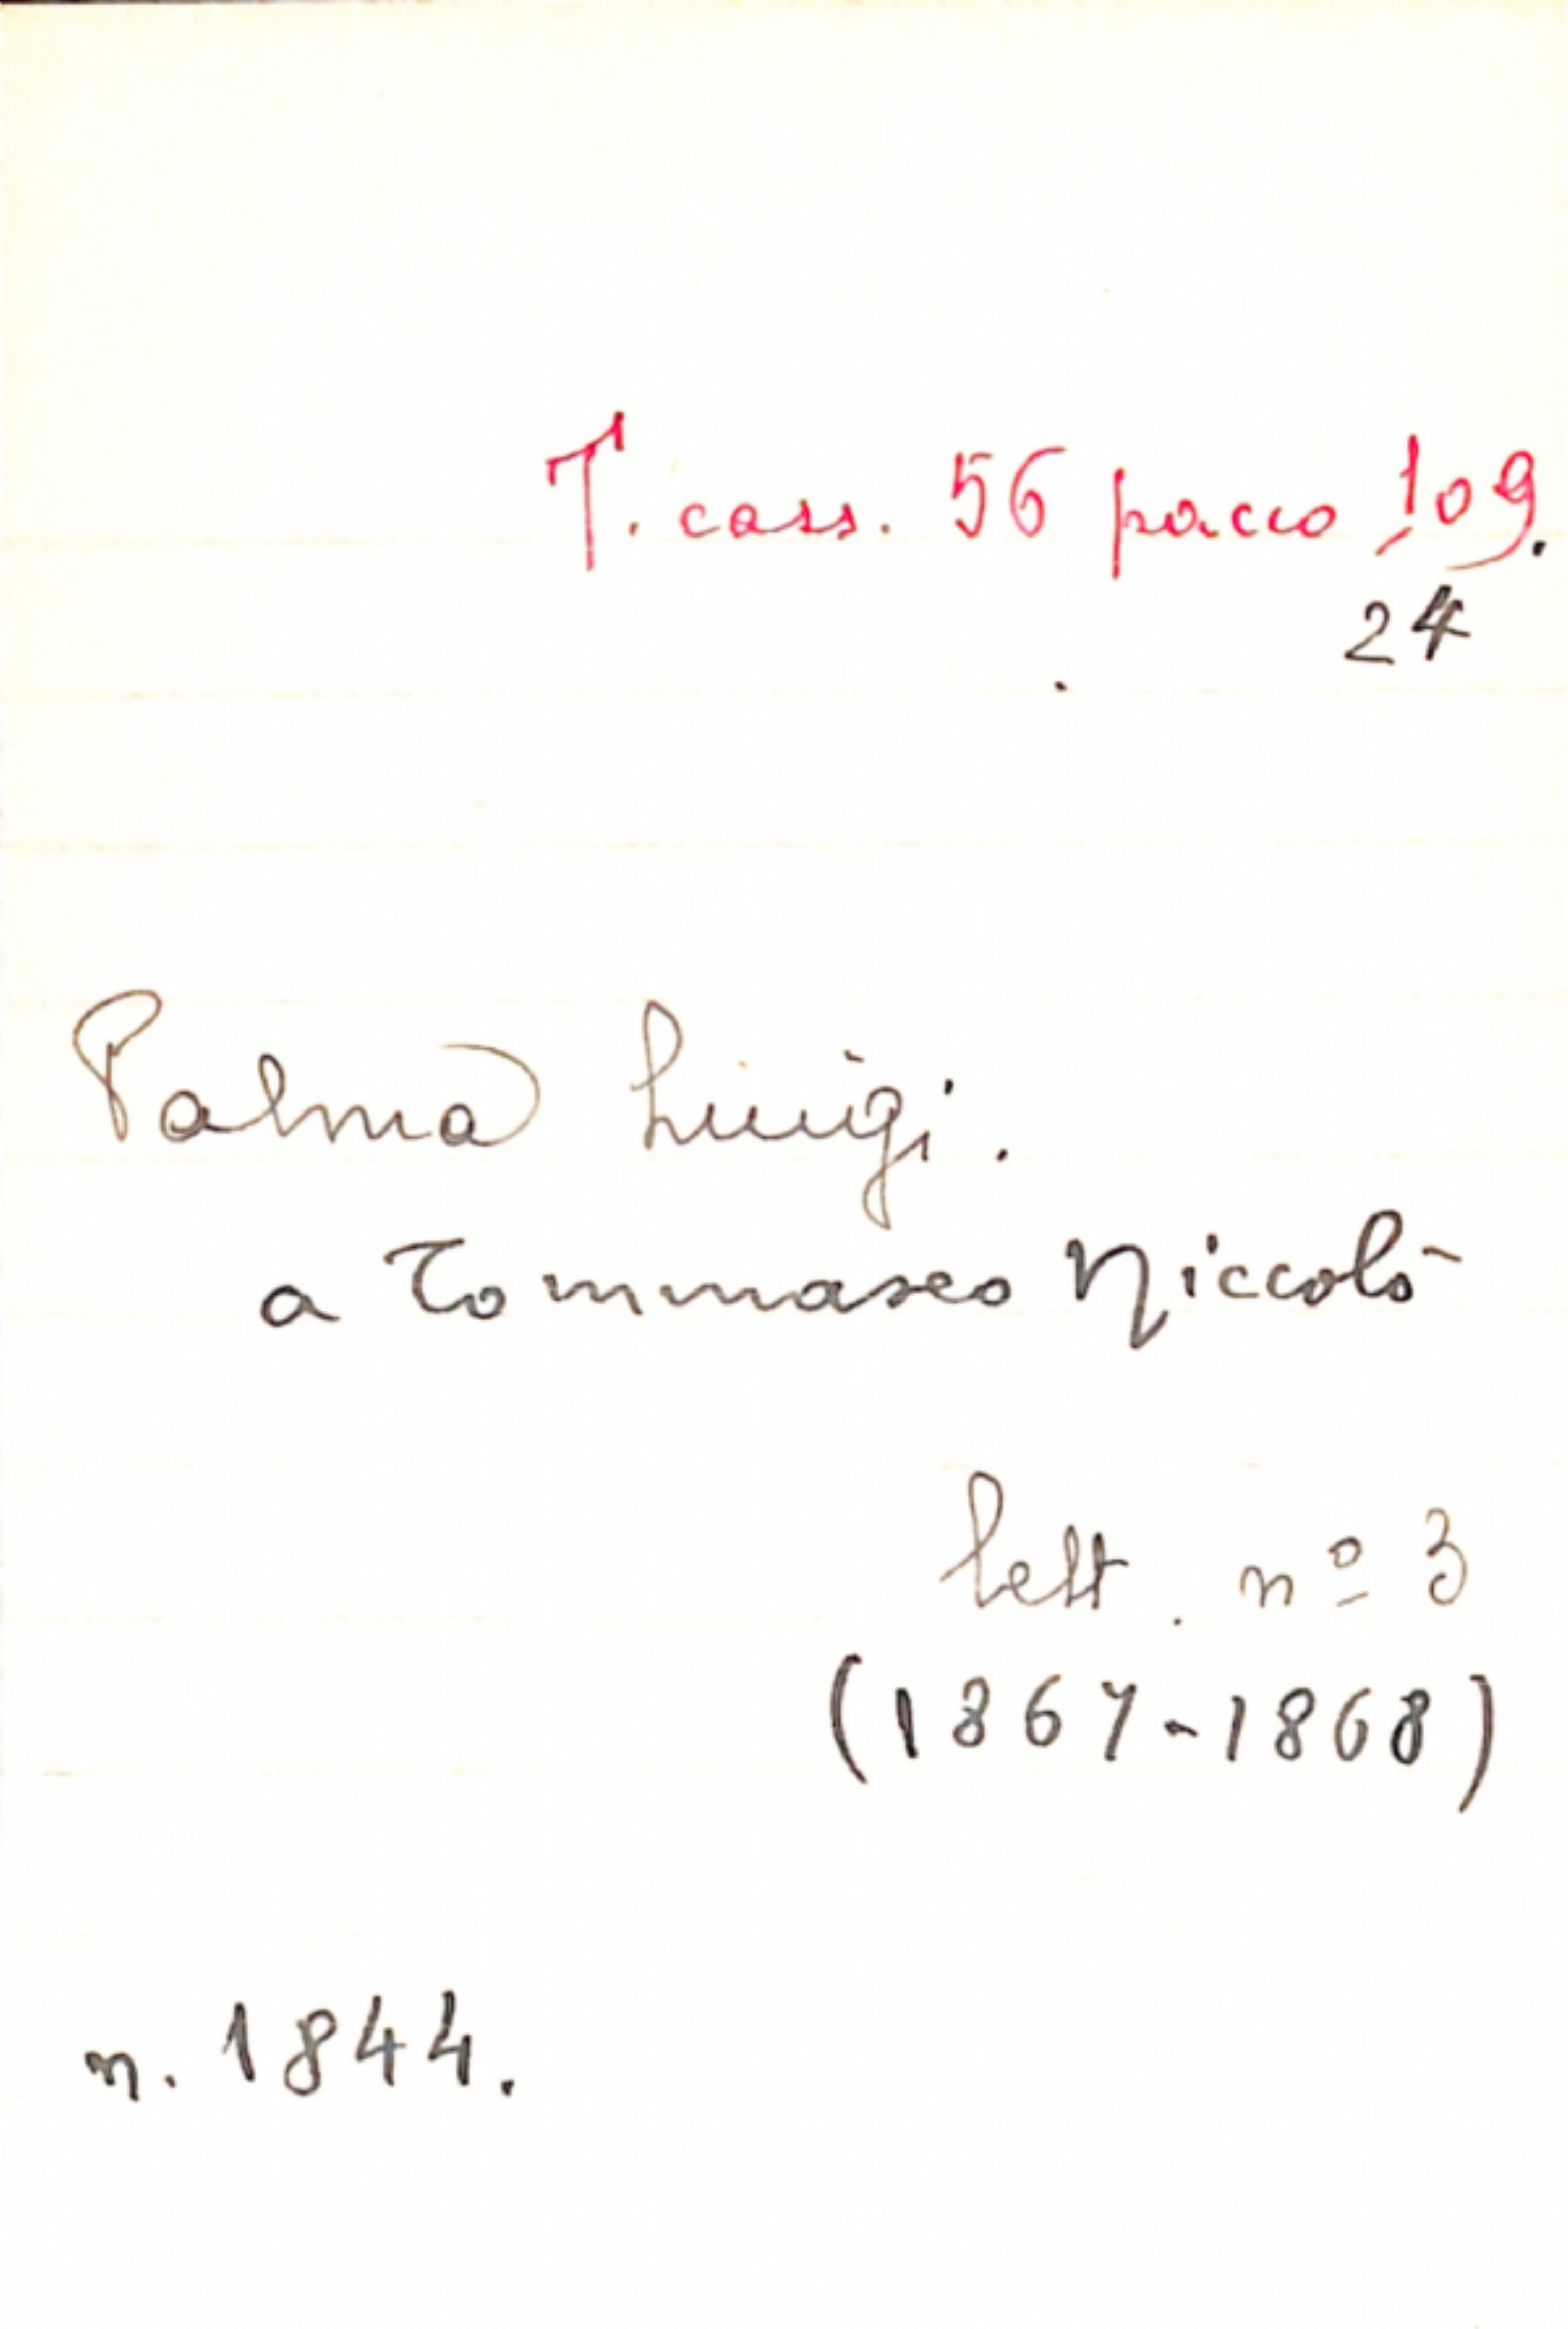 T. cass. 56 pacco 109.
24
Palma Luigi.
a Tommaseo Niccolò
lett. nº 3
(1867-1868)
n. 1844.